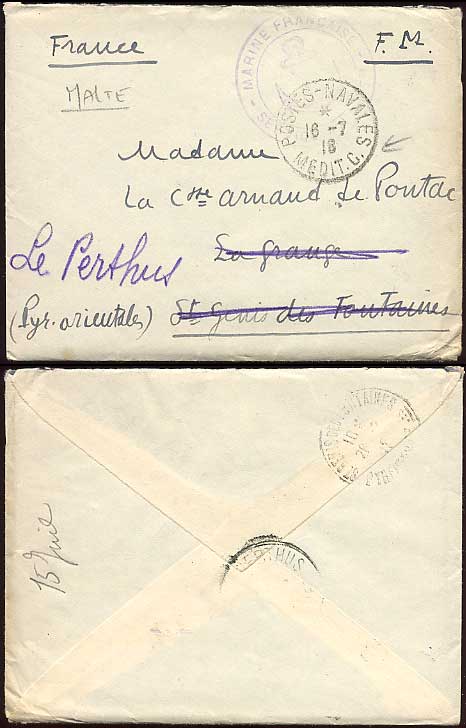 France F. M.
MALTE
MARINE FRANÇAISE
POSTES-NAVALES
*
16 -7
18
MEDIT. C.
Madame
La Ctsse Arnaud de Pontac
La Grange
Le Perthus
(Pyr. orientales) St Genis des Fontaines
ST GENIS DES FONTAINES
PERTHUS
15 Juil